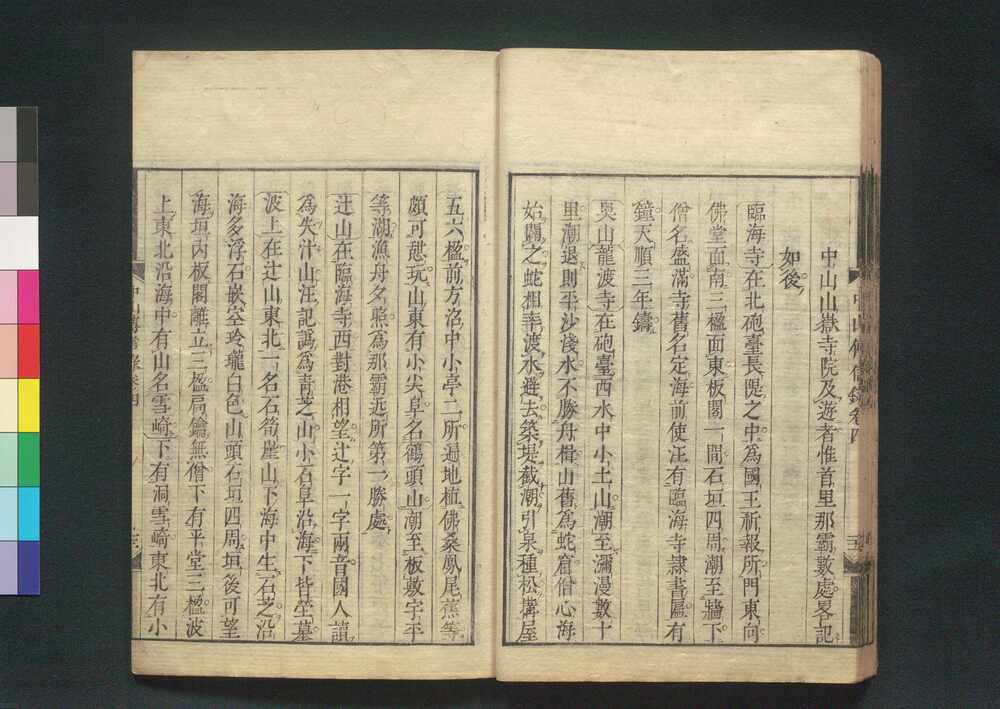 中山傳信錄卷四
中山山嶽寺院及遊者惟首里那霸數處畧記
如後
臨海寺在北砲臺長隄之中爲國王祈報所門東向
佛堂面南三楹面東板閣一間石垣四周潮至牆下
僧名盛滿寺舊名定海前使汪有臨海寺隷書匾有
鐘天順三年鑄
奧山龍渡寺在砲臺西水中小土山潮至瀰漫數十
里潮退則平沙淺水不勝舟楫山舊爲蛇窟僧心海
始闢之蛇相率渡水避去築堤截潮引泉種松搆屋
五六楹前方沼中小亭二所遍地植佛桑鳳尾蕉等
頗可憇玩山東有小尖阜名鶴頭山潮至板敷宇平
等湖漁舟夕照爲那霸近所第一勝處
辻山在臨海寺西對港相望辻字一字兩音國人讀
爲失汁山汪記譌爲靑芝山小石阜沿海下皆塋墓
波上在辻山東北一名石筍崖山下海中生石芝沿
海多浮石嵌空玲瓏白色山頭石垣四周垣後可望
海垣內板閣離立三楹扃鑰無僧下有平堂三楹波
上東北沿海中有山名雪崎下有洞雪崎東北有小